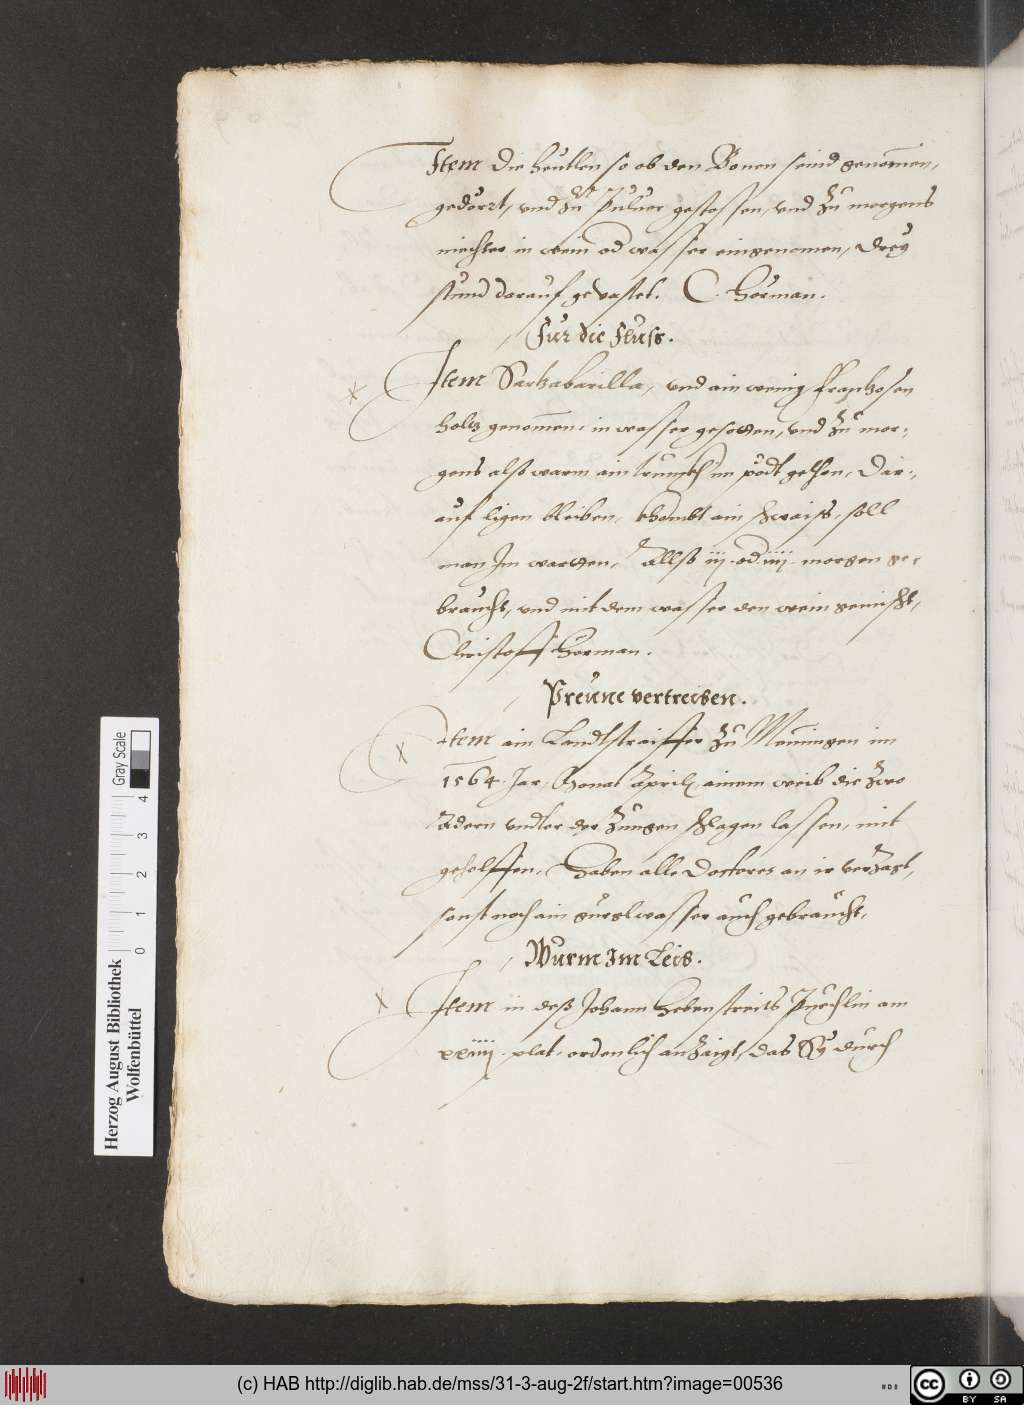 Item die heutlen so ob den Bonen seind genomen,
gedörrt, und zu Puluer gestossen, und zu morgens
niechter in wein od wasser eingenomen, drey
stund darauf gevastet. C. Herman.
Fur die Fluss.
Item Sarkabarilla, und ain wenig Frankosen
holtz genomen, in wasser gesotten, und zu mor-
gens also warm ain trunckh im pödt gethon, dar-
auf ligen bleiben, khombt ain schwaiss, soll
man Im wartten, Allso iij. od iiij. morgen ge-
braucht, und mit dem wasser den wein gemischt,
Christoff Herman.
Preune vertreiben.
Item ain Landtstraiffer zu Meningen im
1564. Jar, Monat Aprilis, ainem weib die zwo
Adern undter der Zungen schlagen lassen, mit
geholffen, haben alle Doctores an ir verzagt,
sonst noch ain gurglwasser auch gebraucht,
Wurm Im Leib.
Item in dess Johann Hebenstreits Puechlin am
xxiiij. plat. ordenlich anzaigt, das Sy durch
Herzog August Bibliothek
Wolfenbüttel
Gray Scale
0 1 2 3 4
(c) HAB http://diglib.hab.de/mss/31-3-aug-2f/start.htm?image=00536
cc BY SA